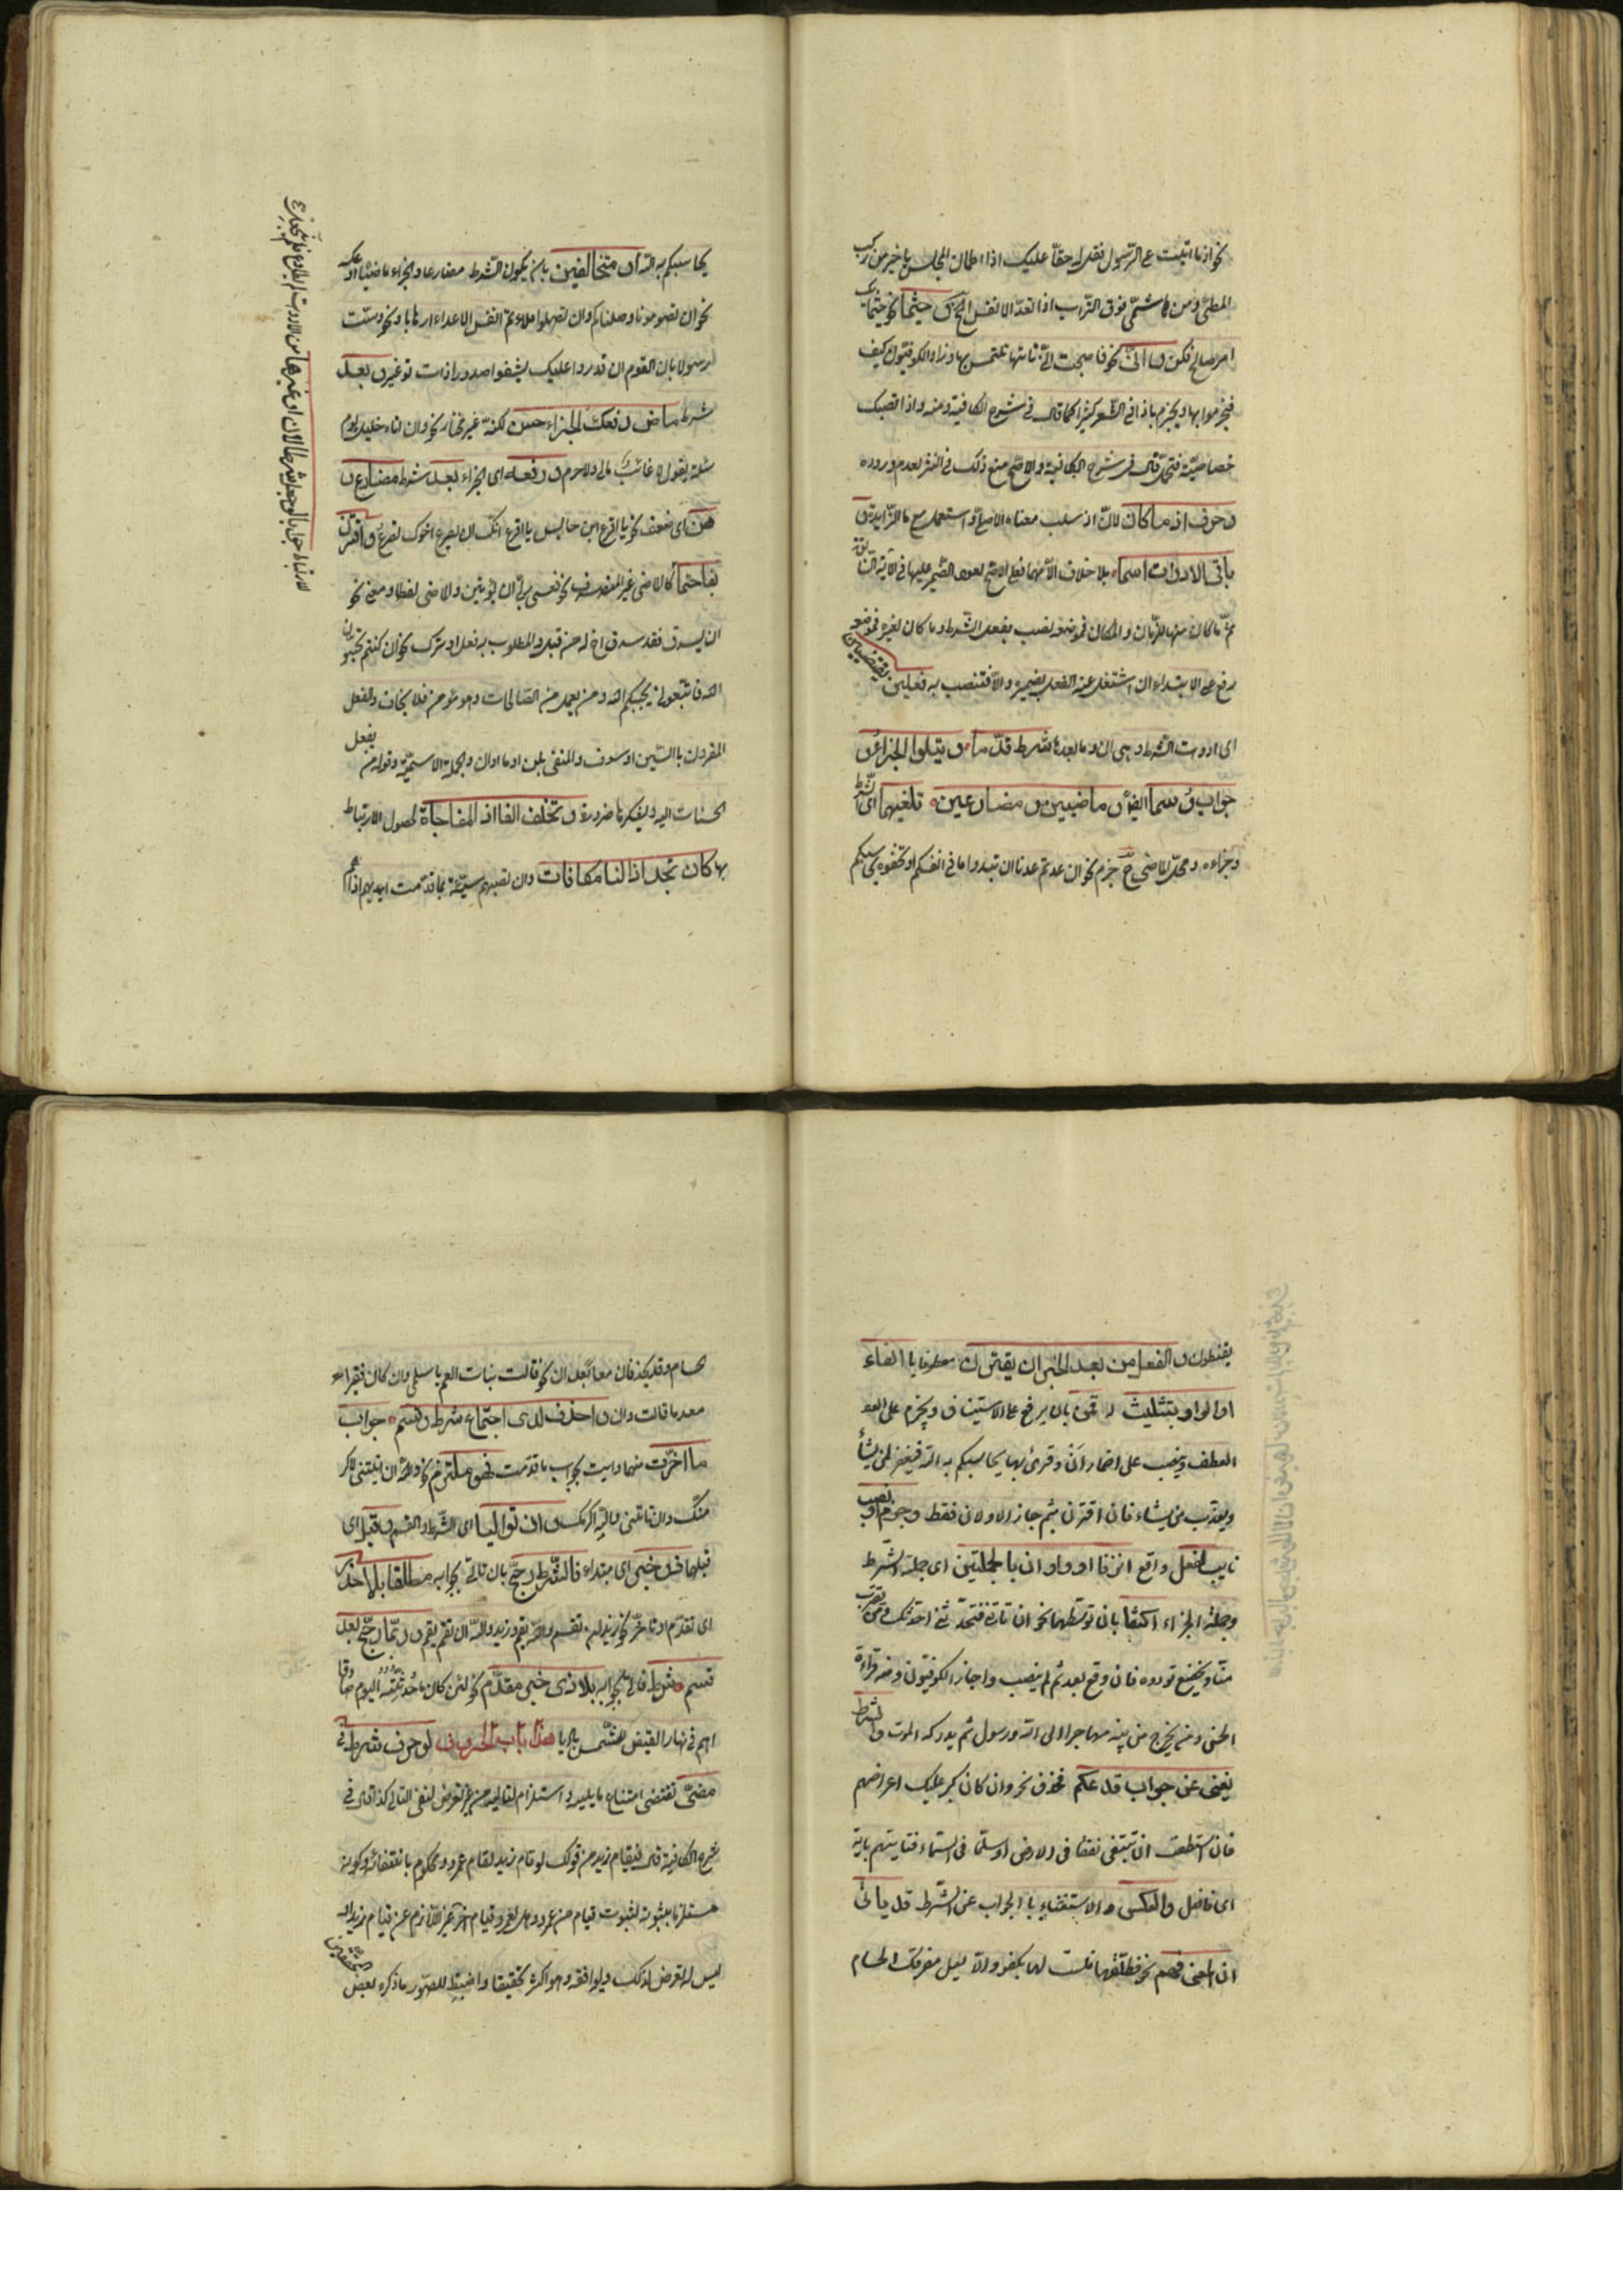 نحو اذ ما اتيت على الرسول فقل له حقا عليك اذا اطمان المجلس يا خير من ركب
المطى ومن مشى فوق التراب اذا تعد الانفس و حيثما نحو حيثما يك
امر صالح فكن و انى نحو فاصبحت انى تاتها تلتمس بها وزاد الكوفيون كيف
فجزموا بها ويجزم باذا فى الشعر كثيرا كما قال فى شرح الكافية ومنه واذا تصبك
خصاصة فتحمل قال فى شرح الكافية والاصح منع ذلك فى النثر لعدم وروده
و حرف اذ ما كان لان اذ سلب معناه الاصلى واستعمل مع ما الزايدة و
باقى الادوات اسما بلا خلاف الا مهما فعلى الاصح لعود الضمير عليها فى الآية
ثم ما كان منها للزمان والمكان فموضعه نصب بفعل الشرط وما كان لغيره فموضعه
رفع على الابتداء ان اشتغل عنه الفعل بضميره والا فتنصب به فعلين يقتضيان
اى ادوات الشرط وهى ان وما بعدها شرط قدما و يتلوا الجزاء و
جوابا وسما ايضا و ماضيين و مضارعين تلفيهما اى الشرط
وجزاءه ومحل الماضى ح جزم نحو ان عدتم عدنا ان تبدوا ما فى انفسكم او تخفوه يحاسبكم
يحاسبكم به الله او متخالفين بان يكون الشرط مضارعا والجزاء ماضيا او عكسه
نحو ان تصرمونا وصلناكم وان تصلوا ملاءتم انفس الاعداء ارهابا ونحو دست
رسولا بان القوم ان قدروا عليك يشفوا صدورا ذات توغير و بعد
شرط ماض رفعك الجزاء حسن لكنه غير مختار نحو وان اتاه خليل يوم
مسئلة يقول لا غائب مالى ولا حرم و رفعه اى الجزاء بعد شرط مضارع و
هن اى ضعف نحو يا اقرع ابن حابس يا اقرع انك ان يصرع اخوك تصرع و اقترن
بفا حتما كالماضى غير المتصرف نحو فعسى ربى ان يؤتين والماضى لفظا ومعنى نحو
ان يسرق فقد سرق اخ له من قبل والمطلوب به فعل او ترك نحو ان كنتم تحبون
الله فاتبعونى يحببكم الله ومن يعمل من الصالحات وهو مؤمن فلا يخاف والفعل
المقرون بالسين او سوف والمنفى بلن او ما او ان والجملة الاسمية وقوله من يفعل
الحسنات الله يشكرها ضرورة و تخلف الفا اذا المفاجاة لحصول الارتباط
بها كان تجد اذا لنا مكافات وان تصبهم سيئة بما قدمت ايديهم اذا هم
يقنطون و الفعل من بعد الجزا ان يقترن معطوفا بالفاء
او الواو بتثليث له قمن بان يرفع على الاستيناف ويجزم على العطف
العطف وينصب على اضمار ان وقرئ بها يحاسبكم به الله فيغفر لمن يشاء
ويعذب من يشاء فان اقترن بثم جاز الاولان فقط و جزم او نصب
ثابت لفعل واقع اثر فا او واو ان بالجملتين اى جملة الشرط
وجملة الجزاء اكتنفا بان توسطهما نحو ان تاتنى فتحدثنى احدثك ومن يقترب
منا ويخضع نؤوه فان وقع بعد ثم لم ينصب واجاز الكوفيون ومنه قراءة
الحسن ومن يخرج من بيته مهاجرا الى الله ورسوله ثم يدركه الموت و الشرط
يغنى عن جواب قد علم فحذف نحو وان كان كبر عليك اعراضهم
فان استطعت ان تبتغى نفقا فى الارض او سلما فى السماء فتاتيهم باية
اى فافعل والعكس و الاستغناء بالجواب عن الشرط قد ياتى
ان المعنى فهم نحو فطلقها فلست لها بكفو والا يعل مفرقك الحسام
حسام وقد يحذفان معا بعد ان نحو قالت بنات العم يا سلمى وان كان فقيرا
معدما قالت وان و احذف لدى اجتماع شرط وقسم جواب
ما اخرت منهما وايت بجواب ما قدمت فهو ملتزم نحو والله ان اتيتنى لاكرمنك
منك وان تاتنى والله اكرمك و ان تواليا اى الشرط والقسم و قبل اى
قبلهما ذو خبر اى مبتداء فالشرط رجح بان تاتى بجوابه مطلقا بلا حذر
اى تقدم او تاخر نحو زيد ان تقم والله يقم وزيد والله ان تقم يقم و ربما رجح بعد
قسم شرط فاتى بجوابه بلا ذى خبر مقدم نحو لئن كان ما حدثته اليوم صادقا
اصم فى نهار القيظ للشمس باديا هذا باب الحروف لو حرف شرط فى
مضى تقتضى امتناع ما يليه واستلزامه لتاليه من غير تعرض لنفى التالى كذا قال فى
شرح الكافية قال فقيام زيد من قولك لو قام زيد لقام عمرو محكوم بانتفائه وكونه
مستلزما ثبوته لثبوت قيام من عمرو وهل لعمرو قيام اخر غير اللازم عن قيام زيد او
ليس له لا تعرض لذلك ويوافقه وهو اكثر تحقيقا واضبط للصور ما ذكره بعض المحققين